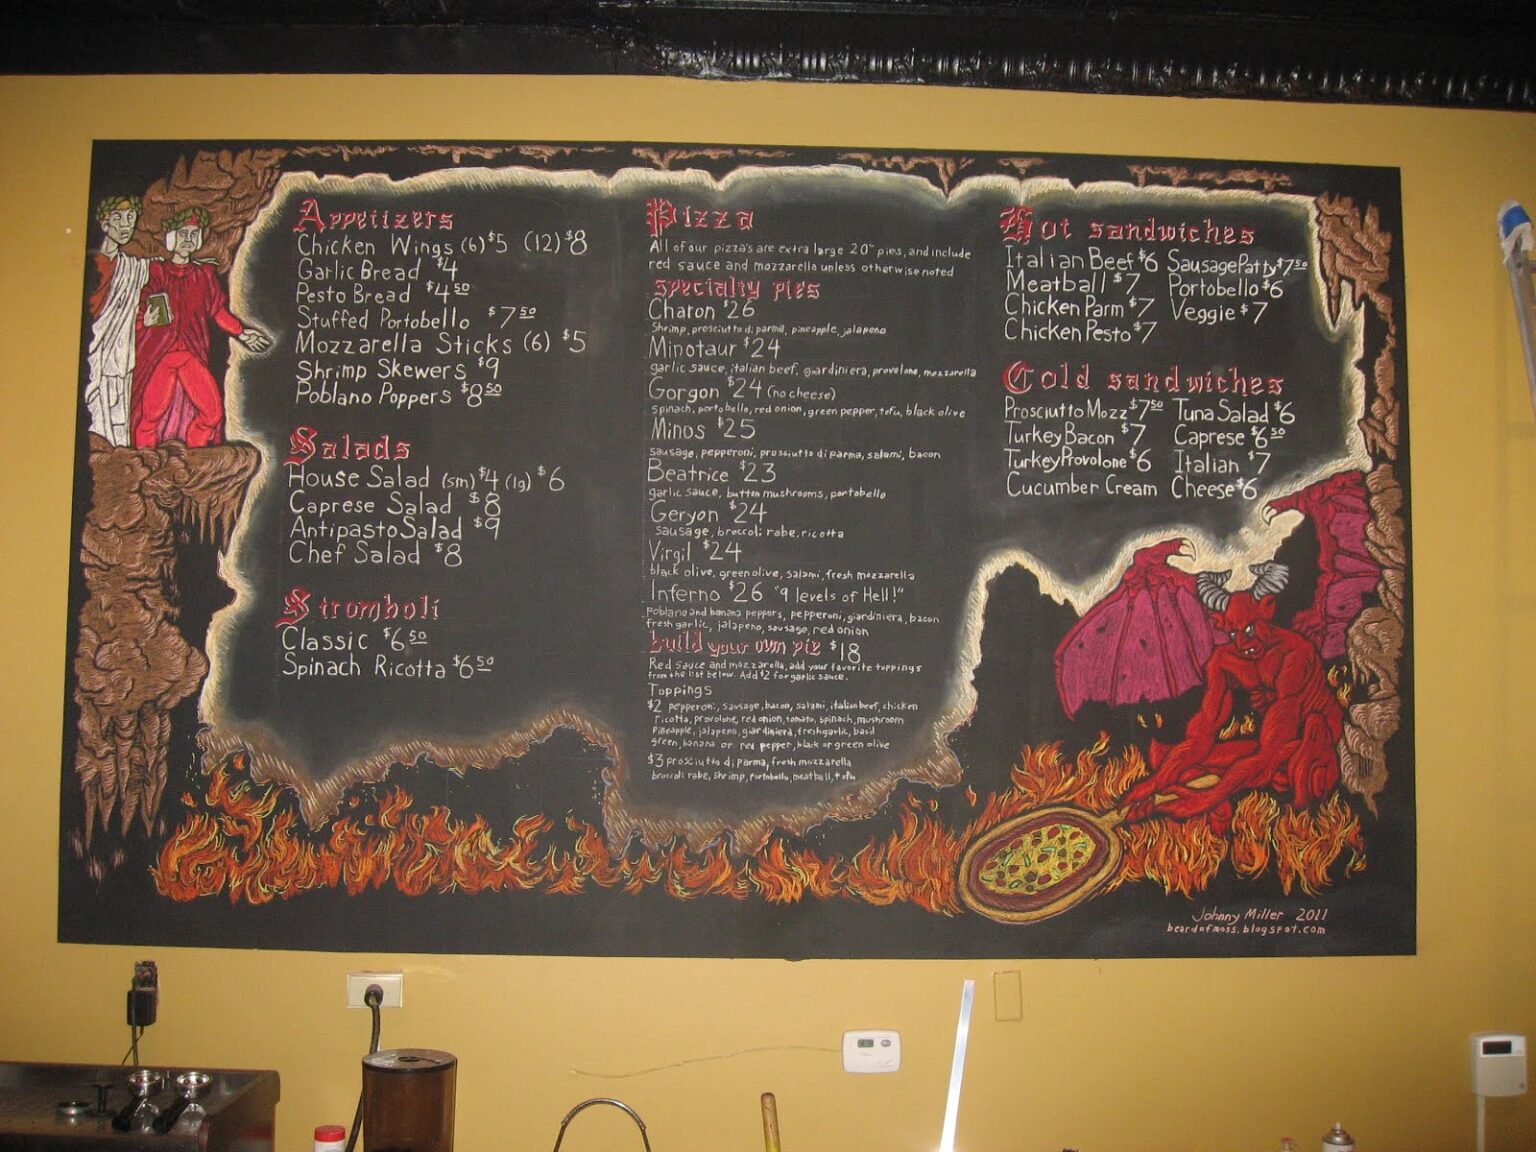 Appetizers
Chicken Wings (6) $5 (12) $8
Garlic Bread $4
Pesto Bread $4 50
Stuffed Portobello $7 50
Mozzarella Sticks (6) $5
Shrimp Skewers $9
Poblano Poppers $8 50
Salads
House Salad (sm) $4 (lg) $6
Caprese Salad $8
Antipasto Salad $9
Chef Salad $8
Stromboli
Classic $6 50
Spinach Ricotta $6 50
Pizza
All of our pizza's are extra large 20" pies, and include
red sauce and mozzarella unless otherwise noted
specialty pies
Charon $26
Shrimp, prosciutto di parma, pineapple, jalapeno
Minotaur $24
garlic sauce, italian beef, giardiniera, provolone, mozzarella
Gorgon $24 (no cheese)
spinach, portobello, red onion, green pepper, tofu, black olive
Minos $25
sausage, pepperoni, prosciutto di parma, salami, bacon
Beatrice $23
garlic sauce, button mushrooms, portobello
Geryon $24
sausage, broccoli rabe, ricotta
Virgil $24
black olive, green olive, salami, fresh mozzarella
Inferno $26 "9 levels of Hell!"
Poblano and banana peppers, pepperoni, giardiniera, bacon
fresh garlic, jalapeno, sausage, red onion
build your own pie $18
Red sauce and mozzarella, add your favorite toppings
from the list below. Add $2 for garlic sauce.
Toppings
$2 pepperoni, sausage, bacon, salami, italian beef, chicken
ricotta, provolone, red onion, tomato, spinach, mushroom
Pineapple, jalapeno, giardiniera, fresh garlic, basil
green, banana or red pepper, black or green olive
$3 prosciutto di parma, fresh mozzarella
broccoli rabe, shrimp, portobello, meatball, tofu
Hot sandwiches
Italian Beef $6 Sausage Patty $7 50
Meatball $7 Portobello $6
Chicken Parm $7 Veggie $7
Chicken Pesto $7
Cold sandwiches
Prosciutto Mozz $7 50 Tuna Salad $6
Turkey Bacon $7 Caprese $6 50
Turkey Provolone $6 Italian $7
Cucumber Cream Cheese $6
Johnny Miller 2011
beardofmoss.blogspot.com